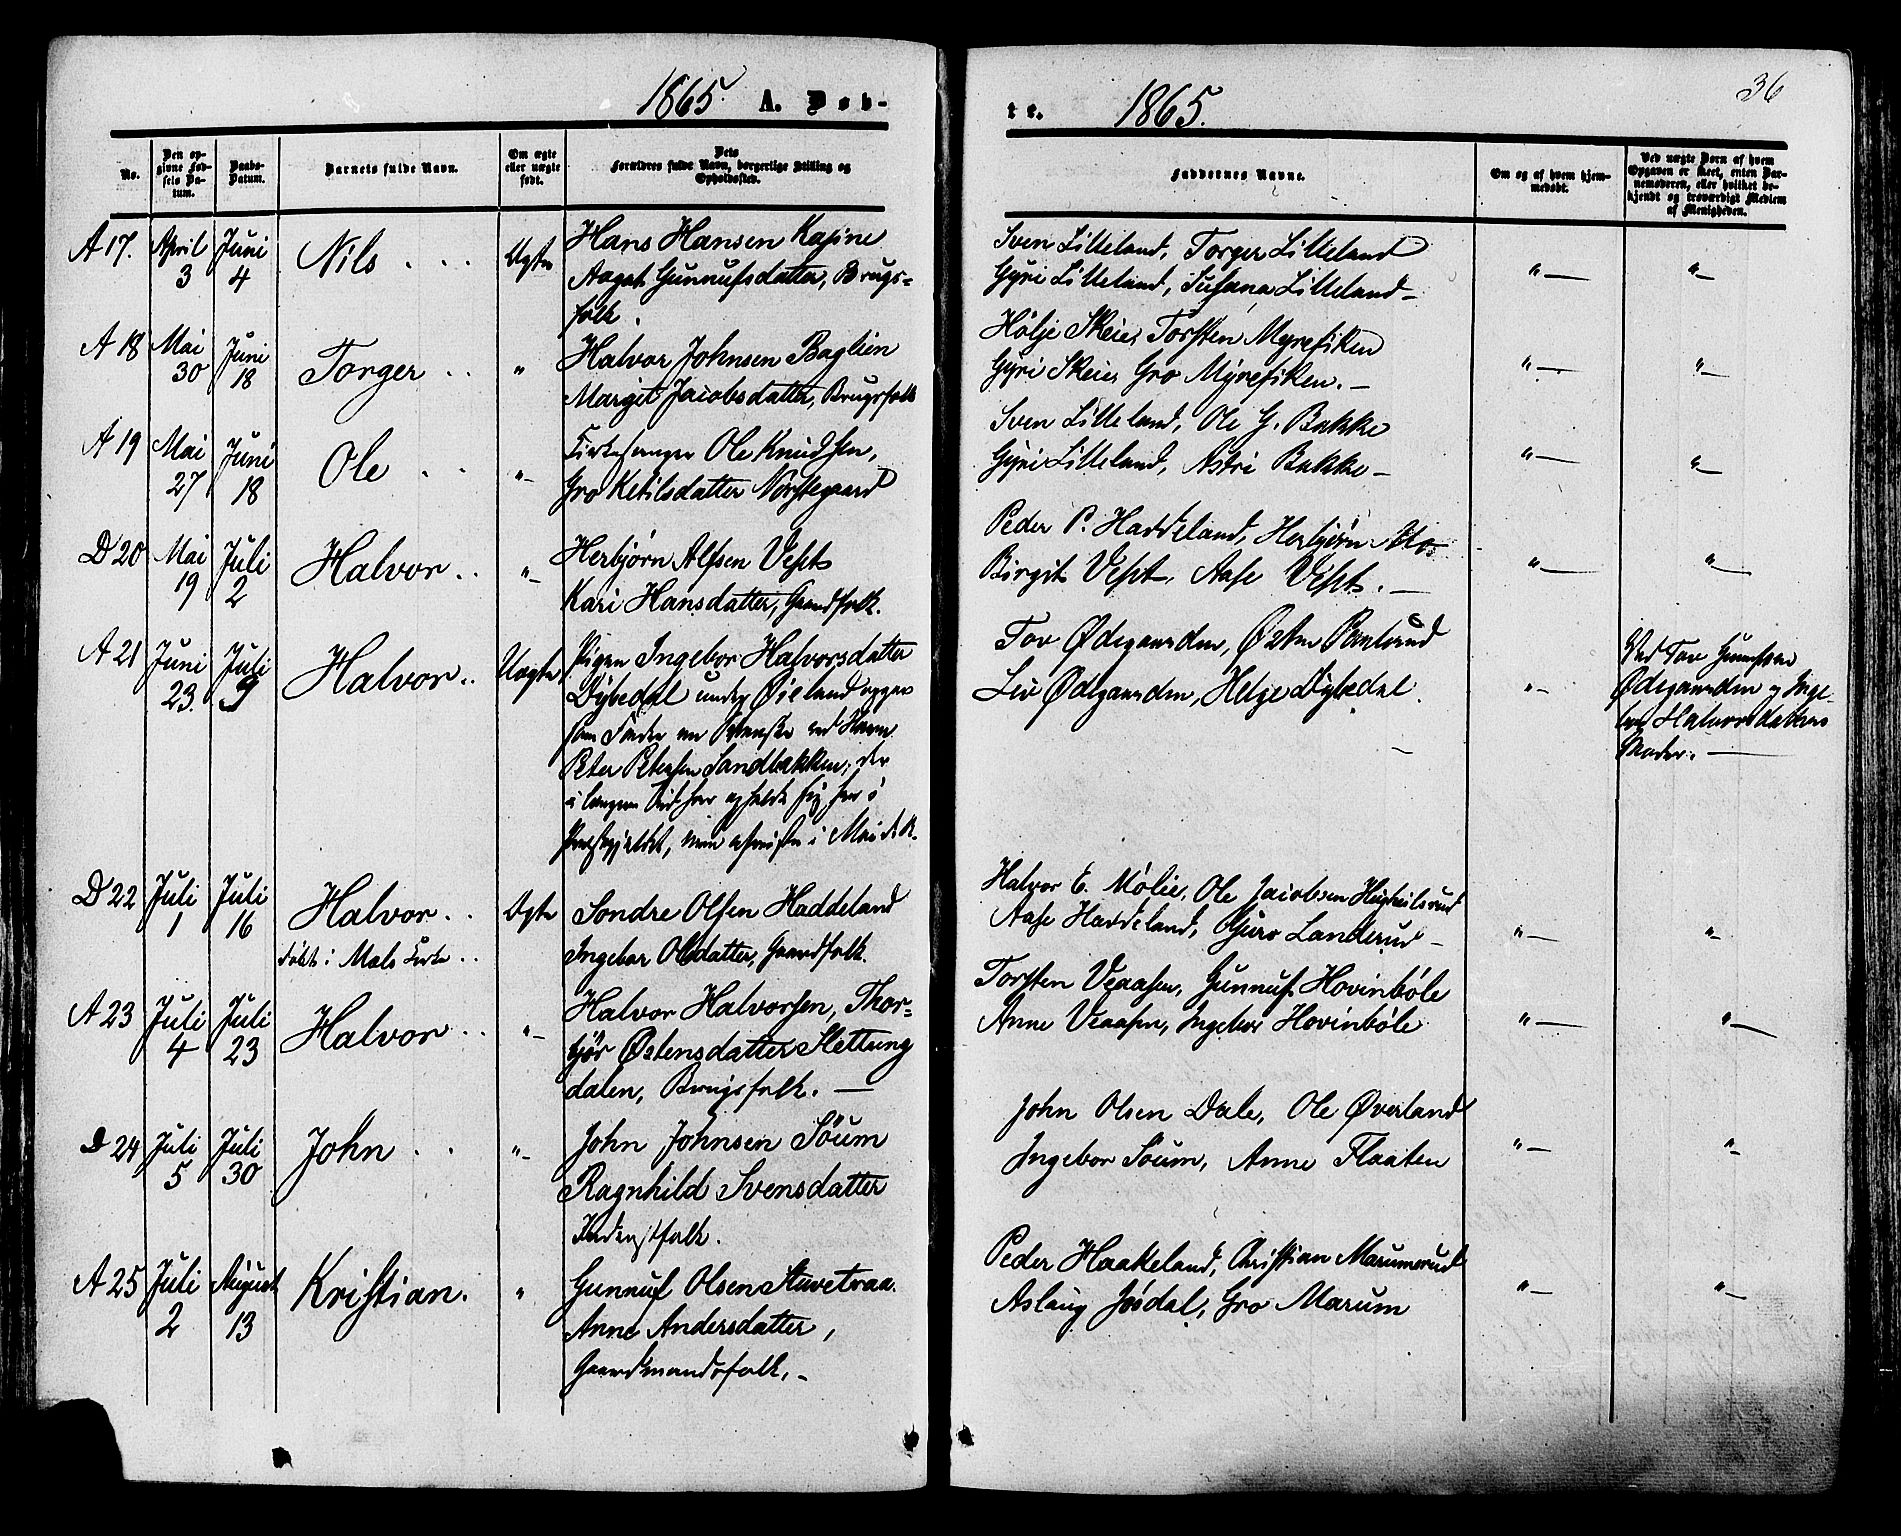 1865. A. Døb-
No.
Den op-
givne Fød-
sels Da-
tum.
Daabs-
Datum.
Barnets fulde Navn.
Om ægte
eller uægte
født.
Dets
Forældres fulde Navn, borgerlige Stilling og
Opholdssted.
A 17. April 3 Juni 4 Nils Ægte
Hans Hansen Kasine
Aagot Gunnufsdatter, Brugs-
folk.
A 18 Mai 30 Juni 18 Torger "
Halvor Johnsen Baglien
Margit Jacobsdatter, Brugsfolk
A 19 Mai 27 Juni 18 Ole "-
Kirkesanger Ole Knudsen,
Gro Ketilsdatter Norstegaard
D 20 Mai 19 Juli 2 Halvor "-
Herbjørn Alfsen Vest
Kari Hansdatter, Gaardfolk.
A 21 Juni 23. Juli 9 Halvor Uægte
Pigen Ingebor Halvorsdatter
Dybedal under Øieland opgav
som Fader en Svenske ved Navn
Peter Petersen Sandbakken, der
i længere Tid har opholdt sig her i
Præstegjældet, men afreiste i Mai d. A.
D 22 Juli 1 Juli 16 Halvor Ægte
døbt i Mæls Kirke
Sondre Olsen Haddeland
Ingebor Olsdatter, Gaardfolk.
A 23 Juli 4 Juli 23 Halvor "-
Halvor Halvorsen, Thor-
bjør Østensdatter Slettung
dalen, Brugsfolk. —
D 24 Juli 5 Juli 30 John "-
John Johnsen Søum
Ragnhild Svensdatter
Inderstfolk.
A 25 Juli 2 August 13 Kristian. "
Gunnuf Olsen Stuvetraa.
Anne Andersdatter,
Gaardmandsfolk. -
te. 1865. 36
Faddernes Navne.
Om og af hvem hjem-
medøbt.
Ved uægte Børn af hvem
Opgaven er skeet, enten Bar-
nemoderen, eller hvilket be-
kjendt og troværdigt Medlem
af Menigheden.
Sven Lilleland, Torger Lilleland
Gyri Lilleland, Susana Lilleland - "— "-
Hølje Skeie, Torsten Myrefiken
Gyri Skeie, Gro Myrefiken. - "— "-
Sven Lilleland, Ole G. Bakke
Gyri Lilleland, Astri Bakke - "— "-
Peder P. Haddeland, Herbjørn Mo.
Birgit Vest, Aase Vest. — "— "-
Tov Ødegaarden, Østen
Liv Ødegaarden, Helge Dybedal. "-
Ved Tov Gunufsen
Ødegaarden og Inge-
bor Halvorsdatters
Moder. —
Halvor E. Mølie, Ole Jacobsen
Aase Haddeland, Gjuro Landerud - "— "-
Torsten Veaasen, Gunnuf Hovinbøle
Anne Veaasen, Ingebor Hovinbøle "— "—
John Olsen Dale, Ole Øverland
Ingebor Søum, Anne Flaaten "- "-
Peder Haakeland, Christian Marumsrud
Aslaug Jøsdal, Gro Marum "- "-